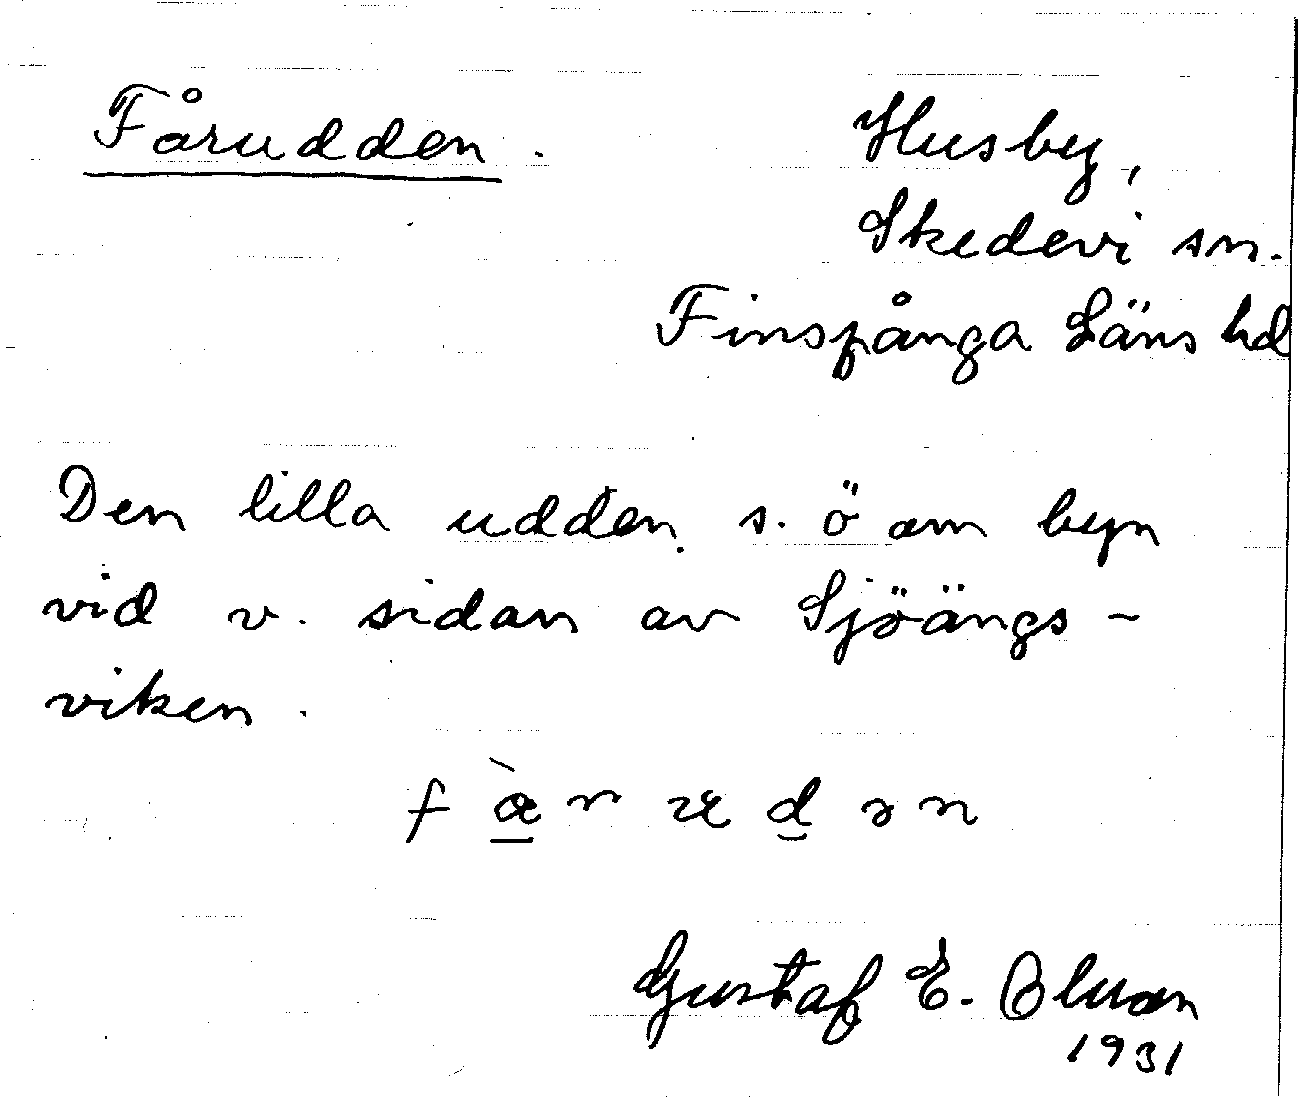 Fårudden.
Husby,
Skedevi sn.
Finspånga Läns hd
Den lilla udden s. ö om byn
vid v. sidan av Sjöängs-
viken.
Gustaf E.
1931